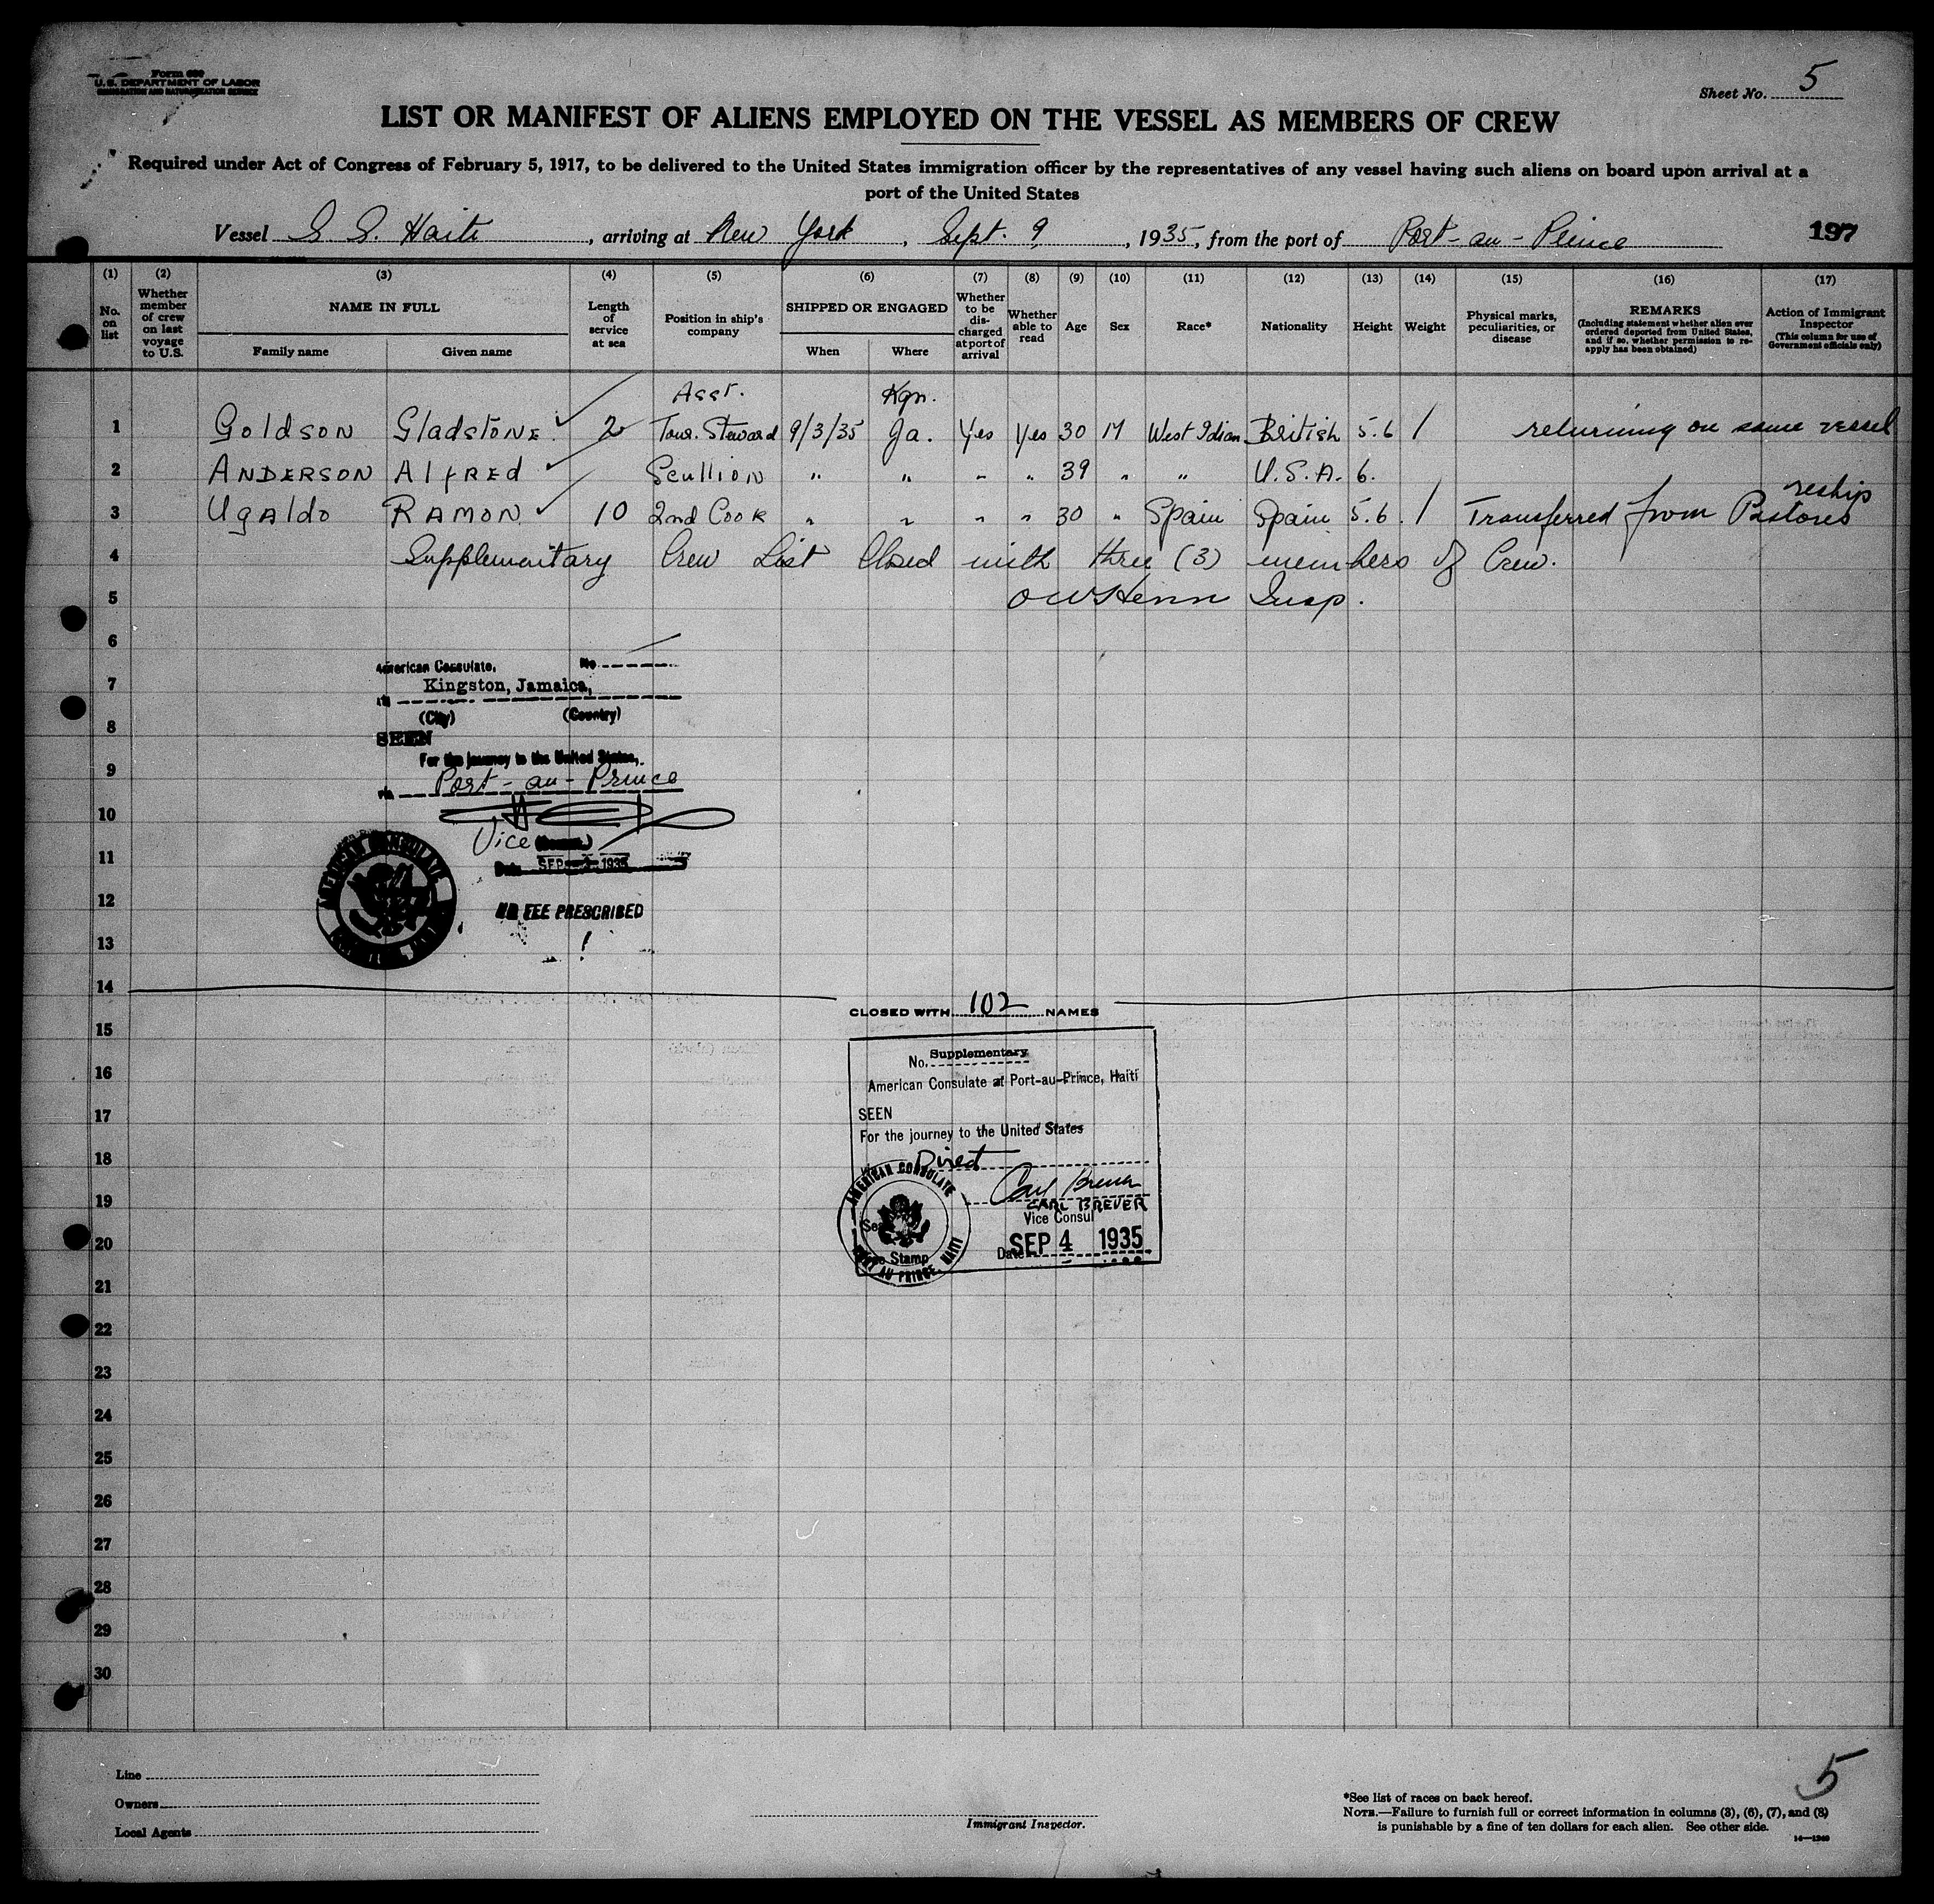 Form 680
U.S. DEPARTMENT OF LABOR
IMMIGRATION AND NATURALIZATION SERVICE
Sheet No. 5
LIST OR MANIFEST OF ALIENS EMPLOYED ON THE VESSEL AS MEMBERS OF CREW
Required under Act of Congress of February 5, 1917, to be delivered to the United States immigration officer by the representatives of any vessel having such aliens on board upon arrival at a
port of the United States
Vessel S S. Haiti, arriving at New York, Sept. 9, 1935, from the port of Port-au-Prince 197
(1) (2) (3) (4) (5) (6) (7) (8) (9) (10) (11) (12) (13) (14) (15) (16) (17)
No. on list
Whether member of crew on last voyage to U.S.
NAME IN FULL
Family name Given name
Length of service at sea
Position in ship's company
SHIPPED OR ENGAGED
When Where
Whether to be discharged at port of arrival
Whether able to read
Age
Sex
Race*
Nationality
Height
Weight
Physical marks, peculiarities, or disease
REMARKS
(Including statement whether alien ever ordered deported from United States, and if so, whether permission to reapply has been obtained)
Action of Immigrant Inspector
(This column for use of Government officials only)
Asst. Kgn.
1 Goldson Gladstone 2 Tour. Steward 9/3/35 Ja. Yes Yes 30 M West Idian British 5.6 / returning on same vessel
2 Anderson Alfred Scullion " " " " 39 " " U.S.A. 6.
reship
3 Ugaldo Ramon 10 2nd Cook " " " " 30 " Spain Spain 5.6. / Transferred from Pastores
4 Supplementary Crew List Closed with three (3) members of Crew.
5 OWHenn Insp.
6
American Consulate, No
7 Kingston, Jamaica,
(City) (Country)
8
SEEN
For the journey to the United States,
9
via Port-au-Prince
10
Vice (Consul.)
11 Date SEP 1935
AMERICAN CONSULATE
12 NO FEE PRESCRIBED
13
14
CLOSED WITH 102 NAMES
15
No. Supplementary
16 American Consulate at Port-au-Prince, Haiti
17 SEEN
For the journey to the United States
18 Direct
Carl Breuer
19 CARL BREUER
Vice Consul
20 Date SEP 4 1935
AMERICAN CONSULATE
Seal
Fee Stamp
PORT AU PRINCE, HAITI
21
22
23
24
25
26
27
28
29
30
Line
Owners
Local Agents
Immigrant Inspector.
5
*See list of races on back hereof.
NOTE.—Failure to furnish full or correct information in columns (3), (6), (7), and (8)
is punishable by a fine of ten dollars for each alien. See other side.
14—1240